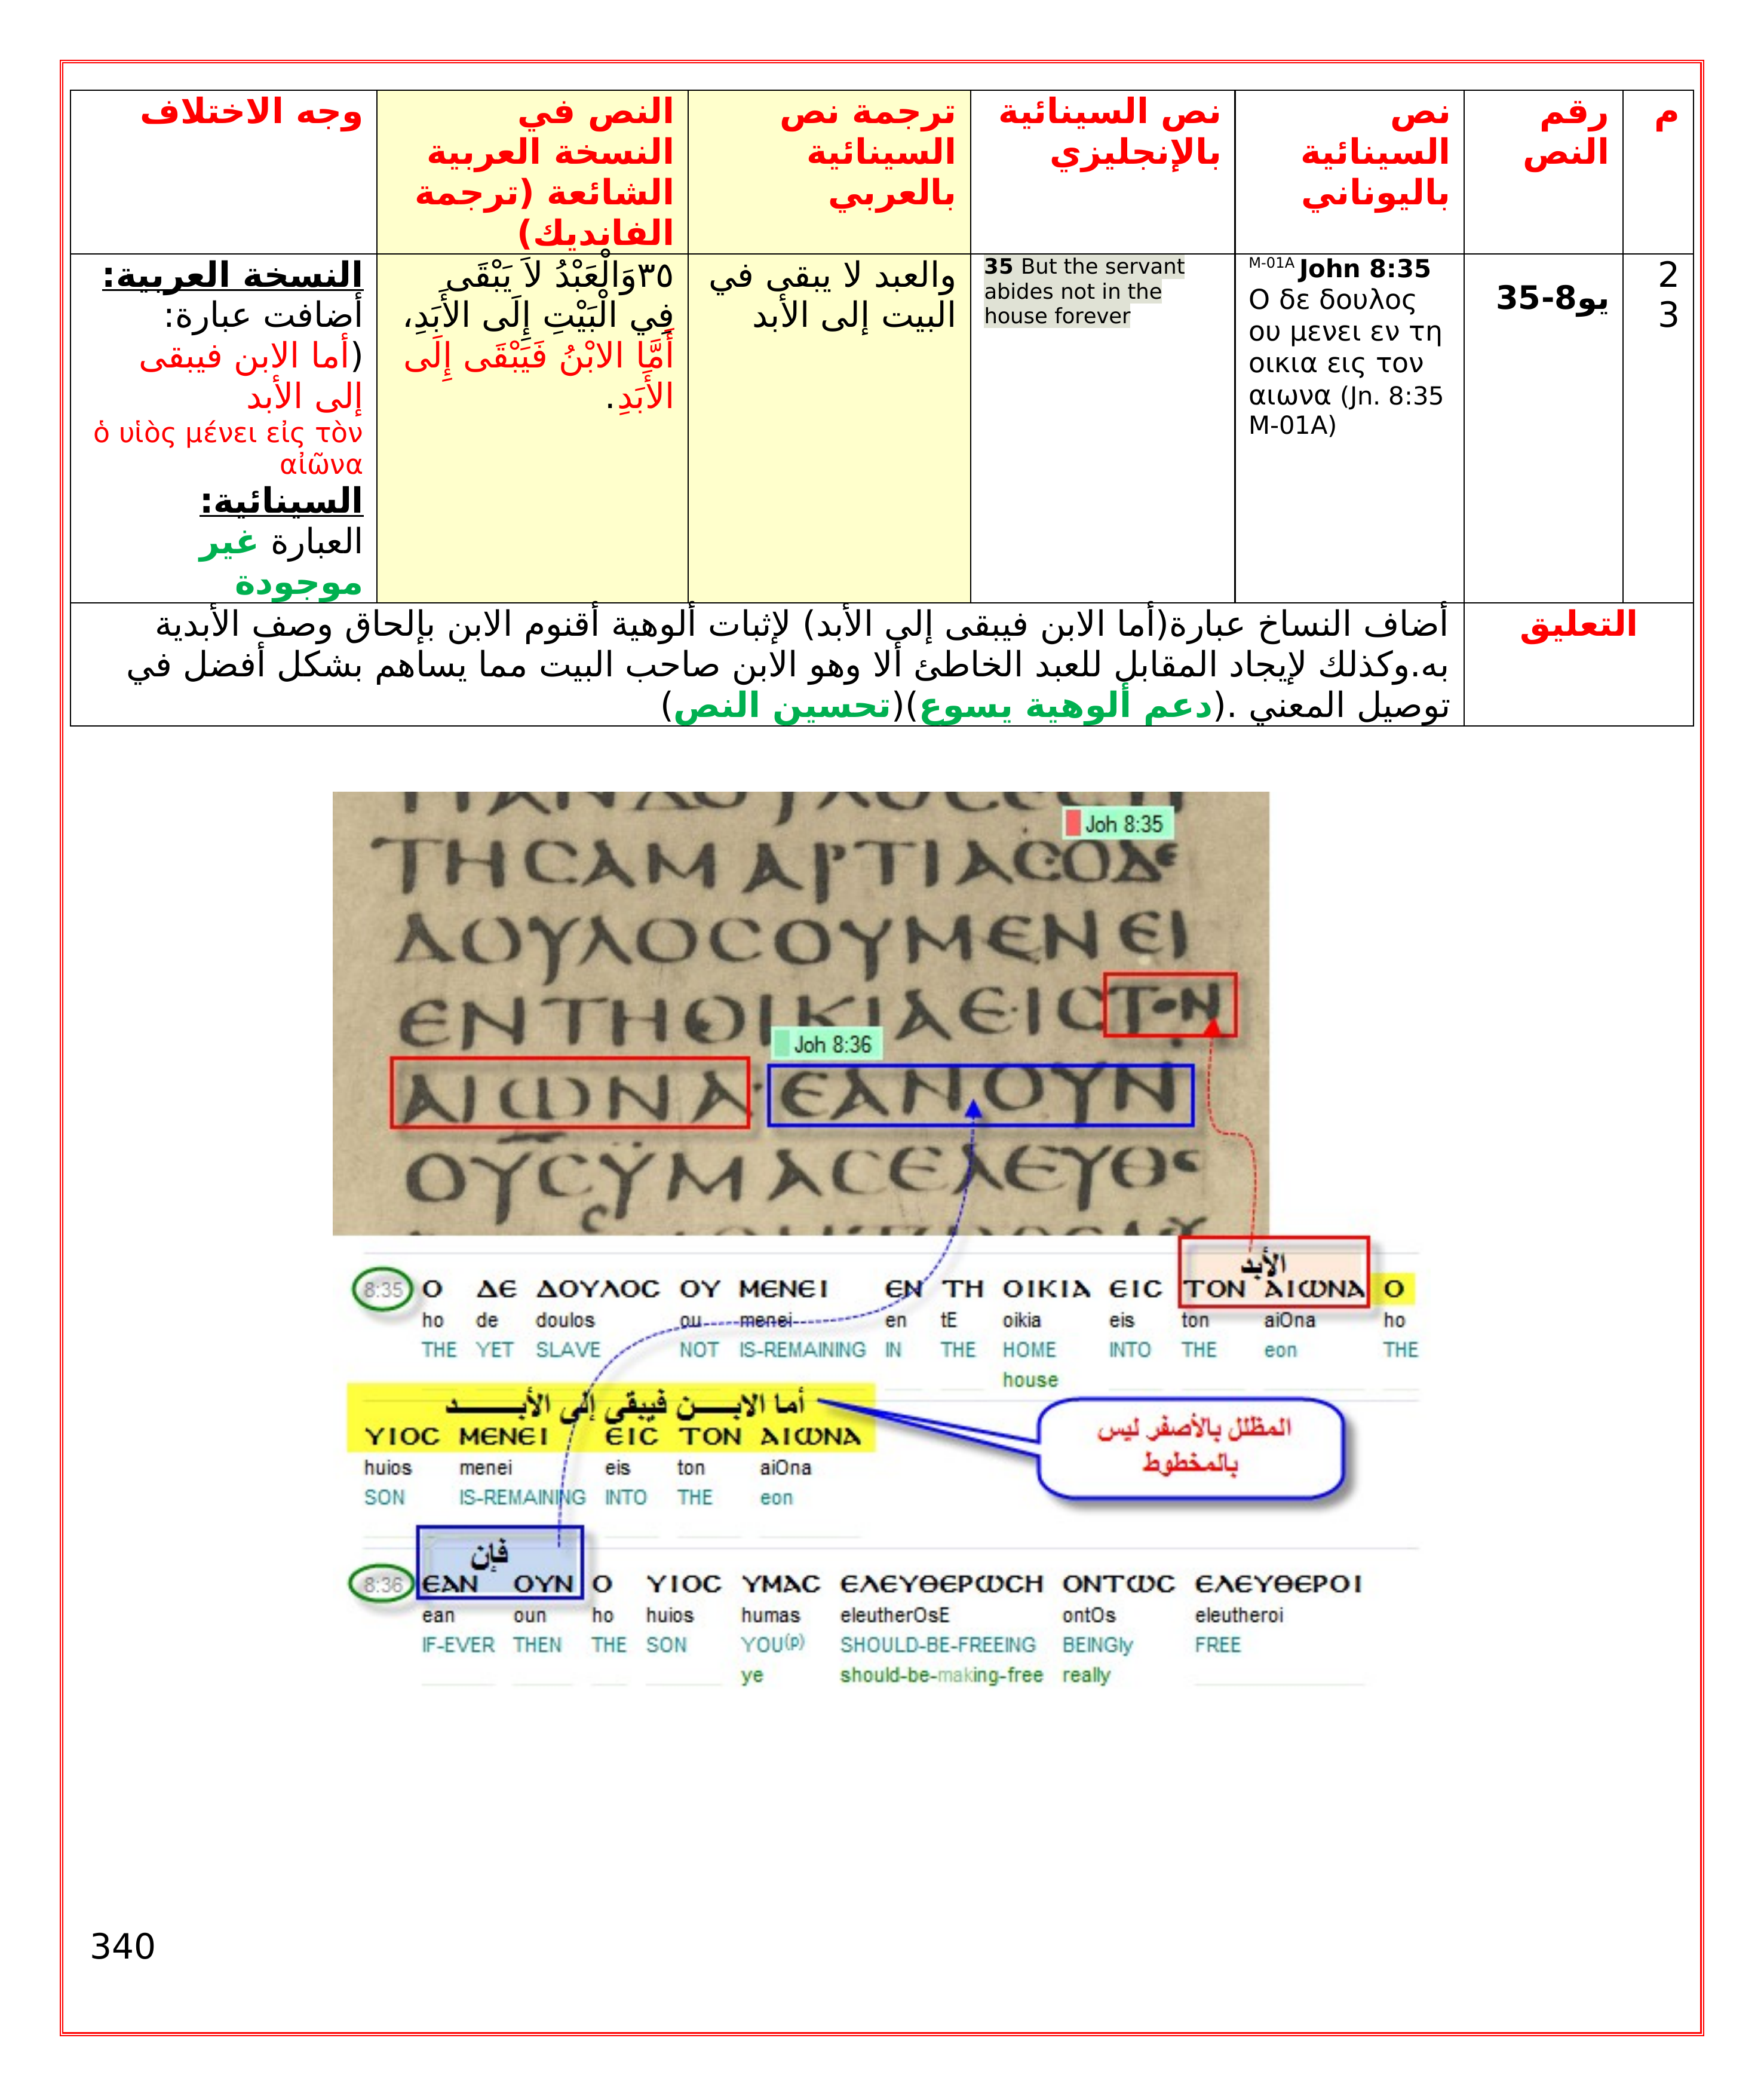 م
رقم
النص
نص
السينائية
باليوناني
نص السينائية
بالإنجليزي
ترجمة نص
السينائية
بالعربي
النص في
النسخة العربية
الشائعة (ترجمة
الفانديك)
وجه الاختلاف
2
3
يو8-35
M-01A John 8:35
Ο δε δουλος
ου μενει εν τη
οικια εις τον
αιωνα (Jn. 8:35
M-01A)
35 But the servant
abides not in the
house forever
والعبد لا يبقى في
البيت إلى الأبد
٣٥وَالْعَبْدُ لاَ يَبْقَى
فِي الْبَيْتِ إِلَى الأَبَدِ،
أَمَّا الابْنُ فَيَبْقَى إِلَى
الأَبَدِ.
النسخة العربية:
أضافت عبارة:
(أما الابن فيبقى
إلى الأبد
ὁ υἱὸς μένει εἰς τὸν
αἰῶνα
السينائية:
العبارة غير
موجودة
التعليق
أضاف النساخ عبارة(أما الابن فيبقى إلى الأبد) لإثبات ألوهية أقنوم الابن بإلحاق وصف الأبدية
به.وكذلك لإيجاد المقابل للعبد الخاطئ ألا وهو الابن صاحب البيت مما يساهم بشكل أفضل في
توصيل المعني .(دعم ألوهية يسوع)(تحسين النص)
Joh 8:35
ΤΗϹΑΜΑΡΤΙΑϹΟΔΕ
ΔΟΥΛΟϹΟΥΜΕΝΕΙ
ΕΝΤΗΟΙΚΙΑΕΙϹΤΟΝ
Joh 8:36
ΑΙΩΝΑ·ΕΑΝΟΥΝ
ΟΥϹΥΜΑϹΕΛΕΥΘΕ
الأبد
8:35 Ο ΔΕ ΔΟΥΛΟϹ ΟΥ ΜΕΝΕΙ ΕΝ ΤΗ ΟΙΚΙΑ ΕΙϹ ΤΟΝ ΑΙΩΝΑ Ο
ho de doulos ou menei en tE oikia eis ton aiOna ho
THE YET SLAVE NOT IS-REMAINING IN THE HOME INTO THE eon THE
house
أما الابـــن فيبقي إلى الأبـــــد
ΥΙΟϹ ΜΕΝΕΙ ΕΙϹ ΤΟΝ ΑΙΩΝΑ
huios menei eis ton aiOna
SON IS-REMAINING INTO THE eon
المظلل بالأصفر ليس
بالمخطوط
فإن
8:36 ΕΑΝ ΟΥΝ Ο ΥΙΟϹ ΥΜΑϹ ΕΛΕΥΘΕΡΩϹΗ ΟΝΤΩϹ ΕΛΕΥΘΕΡΟΙ
ean oun ho huios humas eleutherOsE ontOs eleutheroi
IF-EVER THEN THE SON YOU(p) SHOULD-BE-FREEING BEINGly FREE
ye should-be-making-free really
340